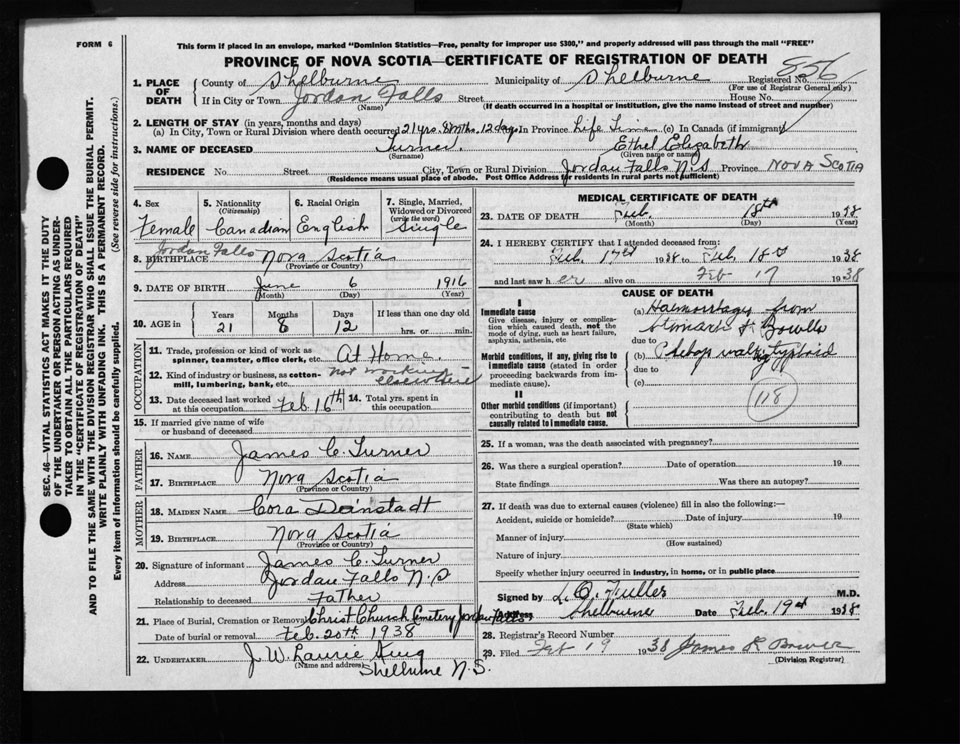 FORM 6
This form if placed in an envelope, marked "Dominion Statistics—Free, penalty for improper use $300," and properly addressed will pass through the mail "FREE"
PROVINCE OF NOVA SCOTIA—CERTIFICATE OF REGISTRATION OF DEATH
856
1. PLACE OF DEATH County of Shelburne Municipality of Shelburne Registered No.
(For use of Registrar General only)
If in City or Town Jordan Falls Street House No.
(Name) (If death occurred in a hospital or institution, give the name instead of street and number)
2. LENGTH OF STAY (in years, months and days)
(a) In City, Town or Rural Division where death occurred 21 yrs. 8 mths. 12 days In Province Life Time (c) In Canada (if immigrant)
3. NAME OF DECEASED Turner. Ethel Elizabeth
(Surname) (Given name or names)
RESIDENCE No. Street City, Town or Rural Division Jordan Falls N.S Province NOVA SCOTIA
(Residence means usual place of abode. Post Office Address for residents in rural parts not sufficient)
4. Sex 5. Nationality (Citizenship) 6. Racial Origin 7. Single, Married, Widowed or Divorced (write the word)
Female Canadian English Single
Jordan Falls
8. BIRTHPLACE Nova Scotia
(Province or Country)
9. DATE OF BIRTH June 6 1916
(Month) (Day) (Year)
10. AGE in Years Months Days If less than one day old
21 8 12 hrs. or min.
OCCUPATION
11. Trade, profession or kind of work as spinner, teamster, office clerk, etc. At Home.
12. Kind of industry or business, as cotton-mill, lumbering, bank, etc. Not working elsewhere
13. Date deceased last worked at this occupation Feb. 16th 14. Total yrs. spent in this occupation
15. If married give name of wife or husband of deceased
FATHER
16. NAME James C. Turner
17. BIRTHPLACE Nova Scotia
(Province or Country)
MOTHER
18. MAIDEN NAME Cora Deinstadt
19. BIRTHPLACE Nova Scotia
(Province or Country)
20. Signature of informant James C. Turner
Address Jordan Falls N.S
Relationship to deceased Father
21. Place of Burial, Cremation or Removal Christ Church Cemetery Jordan Falls
Date of burial or removal Feb. 20th 1938
22. UNDERTAKER J. W. Laurie King
(Name and address) Shelburne N.S.
MEDICAL CERTIFICATE OF DEATH
23. DATE OF DEATH Feb. 18th 1938
(Month) (Day) (Year)
24. I HEREBY CERTIFY that I attended deceased from:
Feb. 17th 1938 to Feb. 18th 1938
and last saw her alive on Feb 17 1938
CAUSE OF DEATH
I
Immediate cause
Give disease, injury or complication which caused death, not the mode of dying, such as heart failure, asphyxia, asthenia, etc.
(a) Haemorrhage from stomach & Bowells
due to
Morbid conditions, if any, giving rise to immediate cause (stated in order proceeding backwards from immediate cause).
(b) Phehaps walking typhoid
due to
(c)
118
II
Other morbid conditions (if important) contributing to death but not causally related to immediate cause.
25. If a woman, was the death associated with pregnancy?
26. Was there a surgical operation? Date of operation 19
State findings Was there an autopsy?
27. If death was due to external causes (violence) fill in also the following:—
Accident, suicide or homicide? Date of injury 19
(State which)
Manner of injury
(How sustained)
Nature of injury
Specify whether injury occurred in industry, in home, or in public place
Signed by L. O. Fuller M.D.
Address Shelburne Date Feb. 19th 1938
28. Registrar's Record Number
29. Filed Feb 19 1938 James L Bower
(Division Registrar)
SEC. 46—VITAL STATISTICS ACT MAKES IT THE DUTY OF THE UNDERTAKER OR PERSON ACTING AS UNDERTAKER TO OBTAIN ALL THE PARTICULARS REQUIRED IN THE "CERTIFICATE OF REGISTRATION OF DEATH" AND TO FILE THE SAME WITH THE DIVISION REGISTRAR WHO SHALL ISSUE THE BURIAL PERMIT.
WRITE PLAINLY WITH UNFADING INK. THIS IS A PERMANENT RECORD.
Every item of information should be carefully supplied. (See reverse side for instructions.)